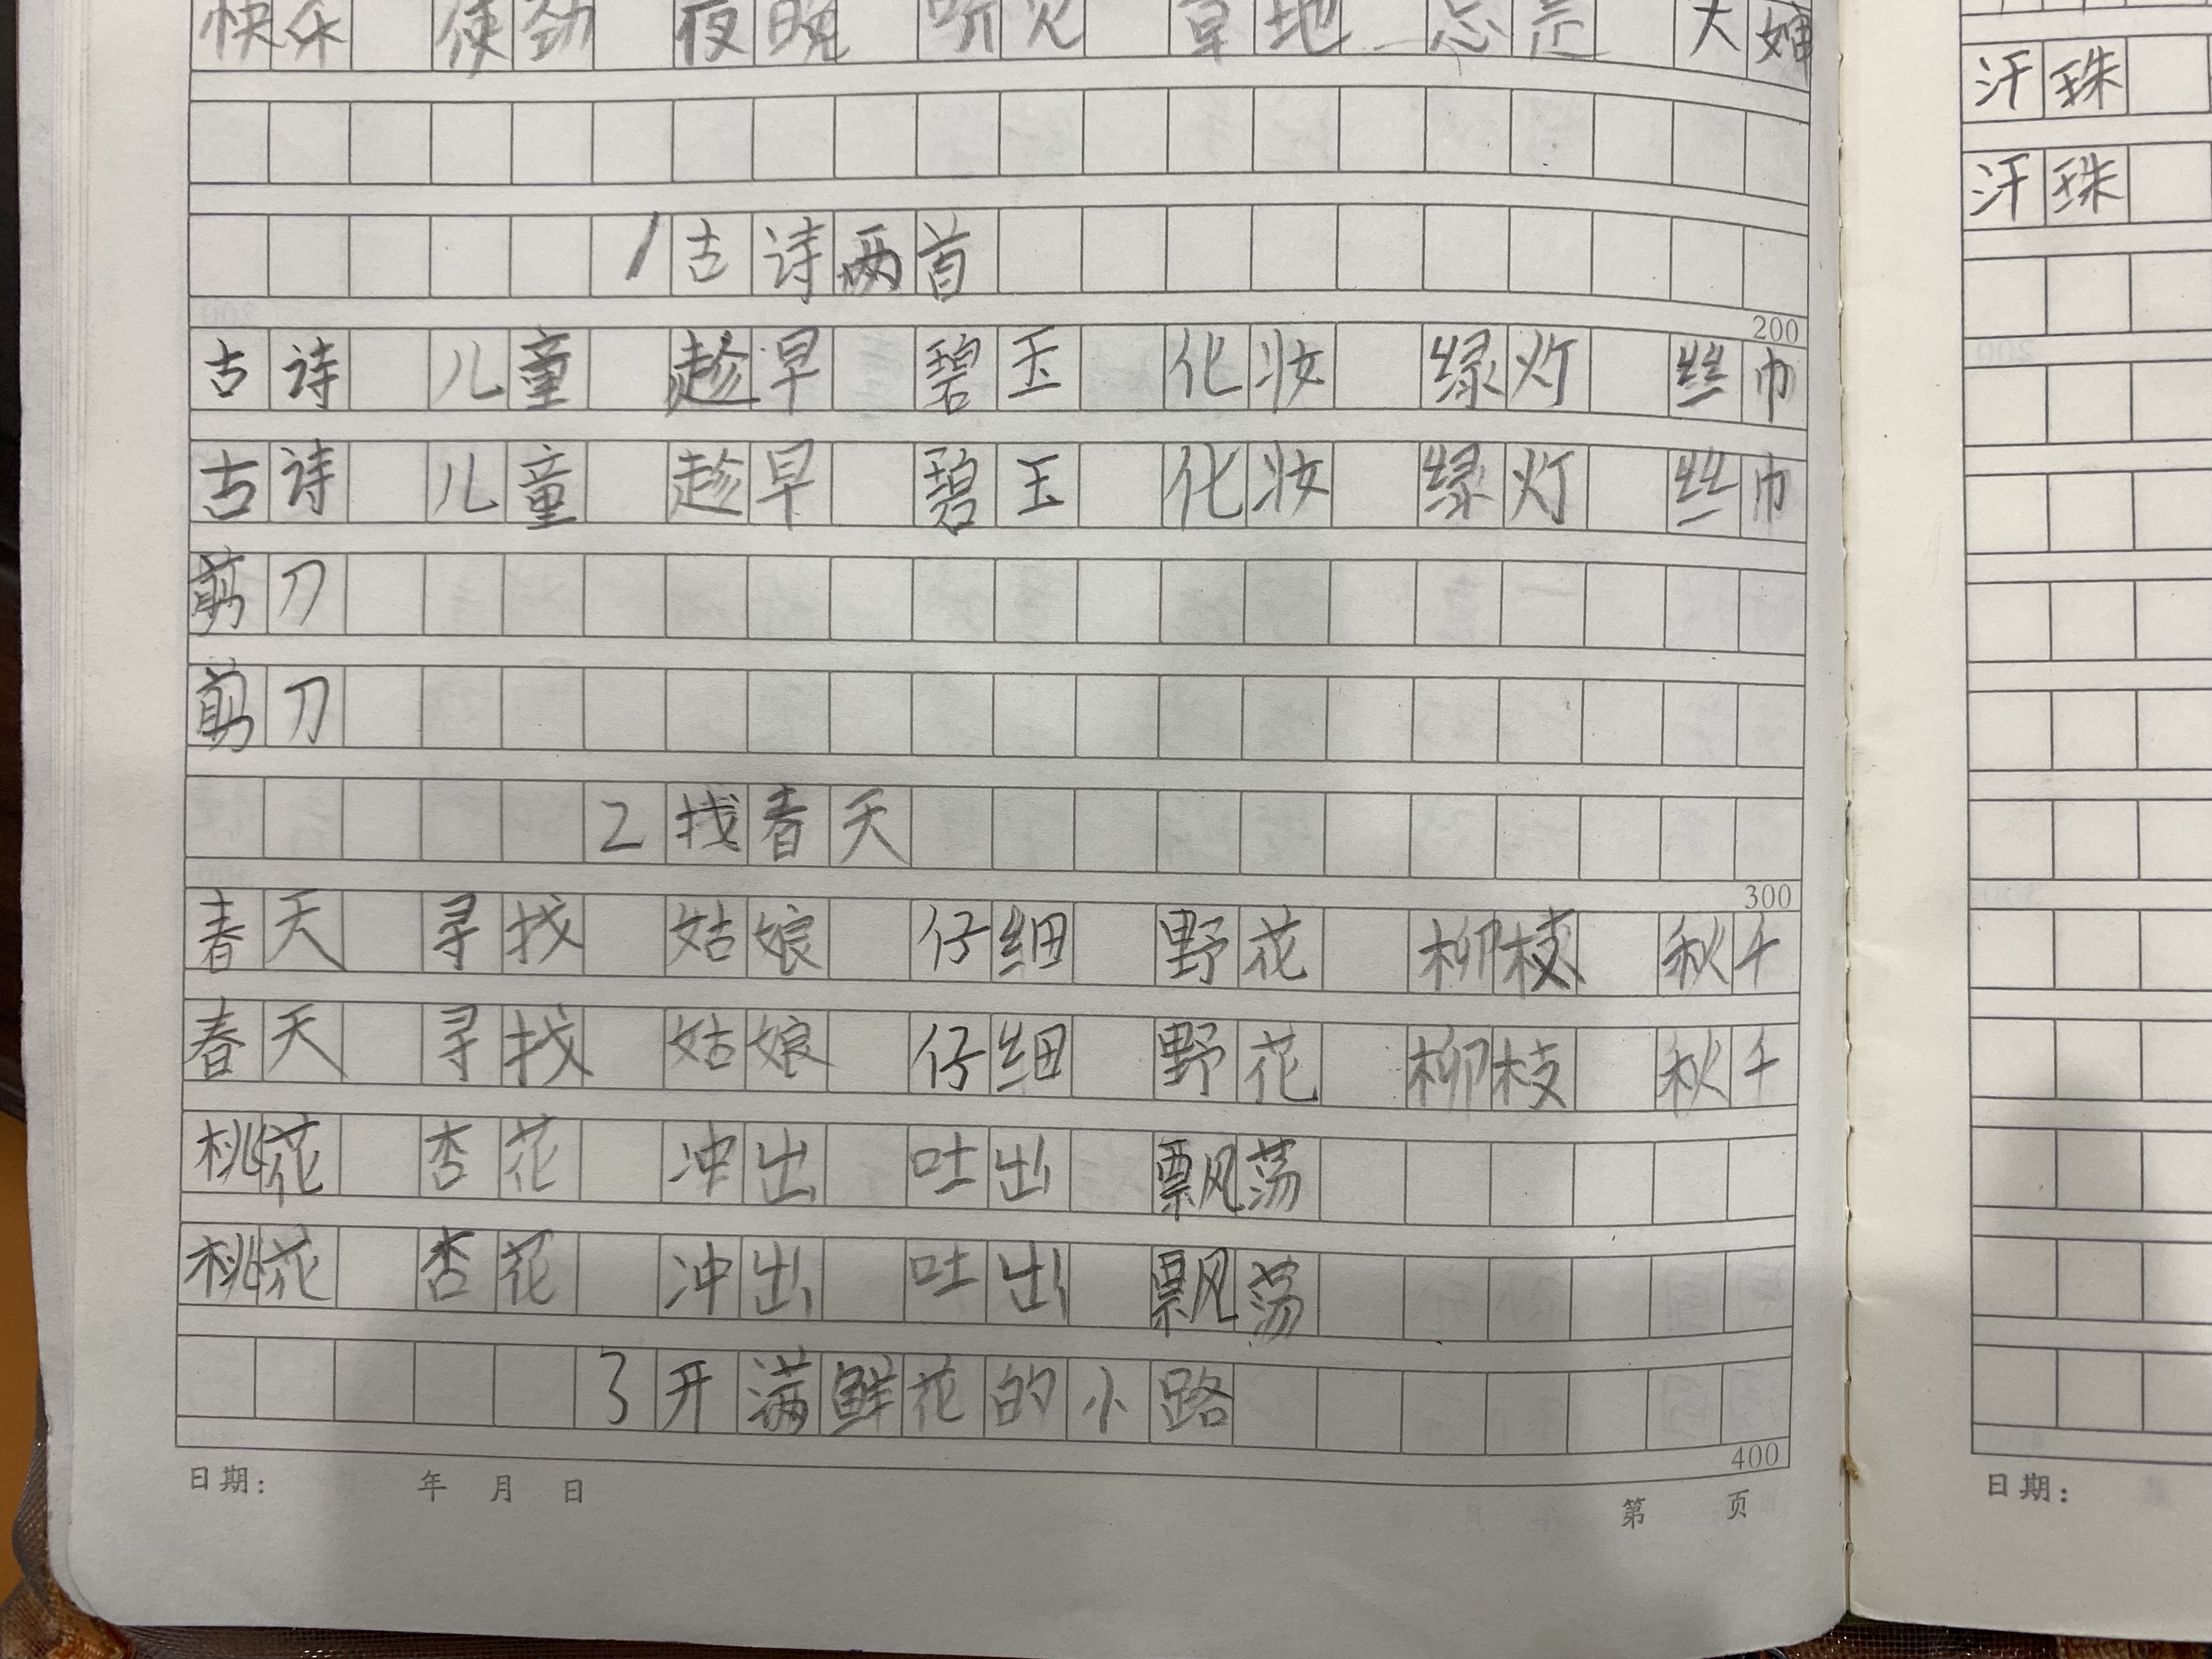 快乐 使劲 夜晚 听见 草地 总是 大婶
1 古诗两首
200
古诗 儿童 趁早 碧玉 化妆 绿灯 丝巾
古诗 儿童 趁早 碧玉 化妆 绿灯 丝巾
剪刀
剪刀
2 找春天
300
春天 寻找 姑娘 仔细 野花 柳枝 秋千
春天 寻找 姑娘 仔细 野花 柳枝 秋千
桃花 杏花 冲出 吐出 飘荡
桃花 杏花 冲出 吐出 飘荡
3 开满鲜花的小路
400
日期: 年 月 日
第 页
汗珠
汗珠
日期: